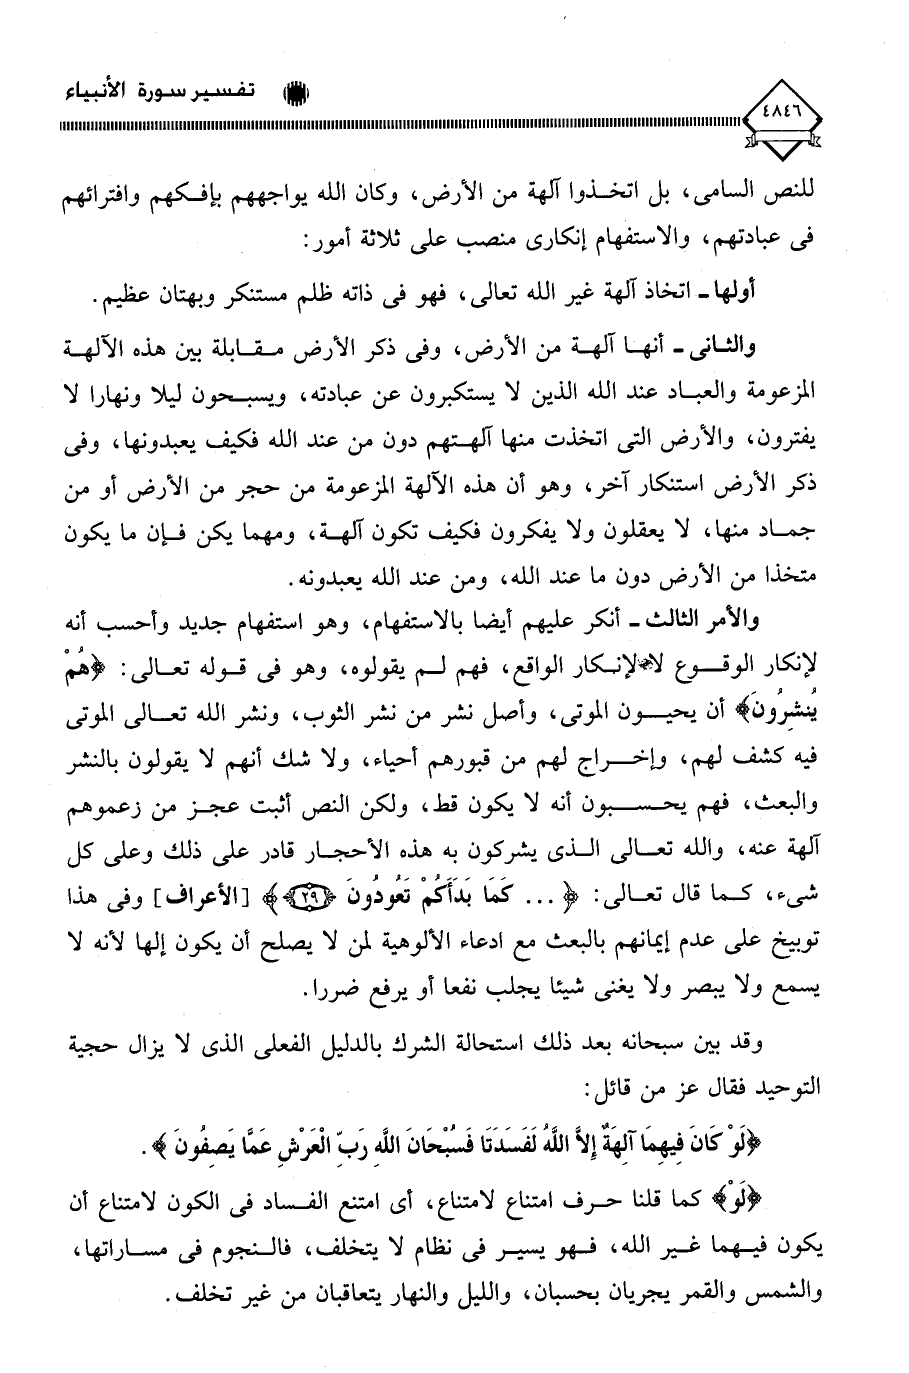 تفسير سورة الأنبياء
٤٨٤٦
للنص السامى، بل اتخذوا آلهة من الأرض، وكان الله يواجههم بإفكهم وافترائهم
فى عبادتهم، والاستفهام إنكارى منصب على ثلاثة أمور:
أولها ـ اتخاذ آلهة غير الله تعالى، فهو فى ذاته ظلم مستنكر وبهتان عظيم.
والثانى ـ أنها آلهة من الأرض، وفى ذكر الأرض مقابلة بين هذه الآلهة
المزعومة والعباد عند الله الذين لا يستكبرون عن عبادته، ويسبحون ليلا ونهارا لا
يفترون، والأرض التى اتخذت منها آلهتهم دون من عند الله فكيف يعبدونها، وفى
ذكر الأرض استنكار آخر، وهو أن هذه الآلهة المزعومة من حجر من الأرض أو من
جماد منها، لا يعقلون ولا يفكرون فكيف تكون آلهة، ومهما يكن فإن ما يكون
متخذا من الأرض دون ما عند الله، ومن عند الله يعبدونه.
والأمر الثالث ـ أنكر عليهم أيضا بالاستفهام، وهو استفهام جديد وأحسب أنه
لإنكار الوقوع لا لإنكار الواقع، فهم لم يقولوه، وهو فى قوله تعالى: ﴿هُمْ
يُنشِرُونَ﴾ أن يحيون الموتى، وأصل نشر من نشر الثوب، ونشر الله تعالى الموتى
فيه كشف لهم، وإخراج لهم من قبورهم أحياء، ولا شك أنهم لا يقولون بالنشر
والبعث، فهم يحسبون أنه لا يكون قط، ولكن النص أثبت عجز من زعموهم
آلهة عنه، والله تعالى الذى يشركون به هذه الأحجار قادر على ذلك وعلى كل
شىء، كما قال تعالى: ﴿ ... كَمَا بَدَأَكُمْ تَعُودُونَ ﴿٢٩﴾ ﴾ [الأعراف] وفى هذا
توبيخ على عدم إيمانهم بالبعث مع ادعاء الألوهية لمن لا يصلح أن يكون إلها لأنه لا
يسمع ولا يبصر ولا يغنى شيئا يجلب نفعا أو يرفع ضررا.
وقد بين سبحانه بعد ذلك استحالة الشرك بالدليل الفعلى الذى لا يزال حجية
التوحيد فقال عز من قائل:
﴿لَوْ كَانَ فِيهِمَا آلِهَةٌ إِلاَّ اللَّهُ لَفَسَدَتَا فَسُبْحَانَ اللَّهِ رَبِّ الْعَرْشِ عَمَّا يَصِفُونَ﴾.
﴿لَوْ﴾ كما قلنا حرف امتناع لامتناع، أى امتنع الفساد فى الكون لامتناع أن
يكون فيهما غير الله، فهو يسير فى نظام لا يتخلف، فالنجوم فى مساراتها،
والشمس والقمر يجريان بحسبان، والليل والنهار يتعاقبان من غير تخلف.